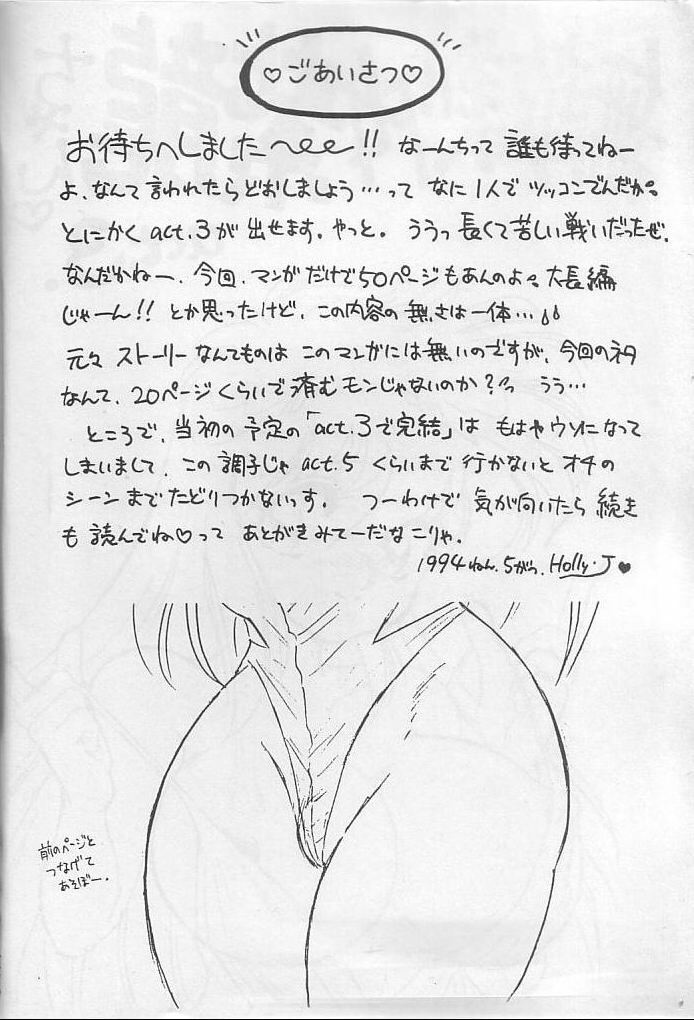 ♡ごあいさつ♡
お待ちへしました〜ee!! なーんちって 誰も待ってねー
よ、なんて言われたらどおしましよう…って なに1人で ツッコンでんだか。
とにかく act.3が 出せます。やっと。 ううっ 長くて苦しい戦いだったぜ.
なんだかねー、今回、マンガだけで50ページもあんのよ。大長編
じゃーん!! とか思ったけど、この内容の無さは一体…
元々 ストーリーなんてものは このマンガには無いのですが、今回のネタ
なんて、20ページくらいで済むモンじゃないのか？ うう…
ところで、当初の予定の「act.3で完結」は もはやウソになって
しまいまして、この調子じゃ act.5 くらいまで行かないと オチの
シーンまでたどりつかないっす。 つーわけで 気が向いたら続き
も 読んでね♡って あとがきみてーだなこりゃ.
1994ねん.5がつ. Holly・J♥
前のページと
つなげて
あそぼー.